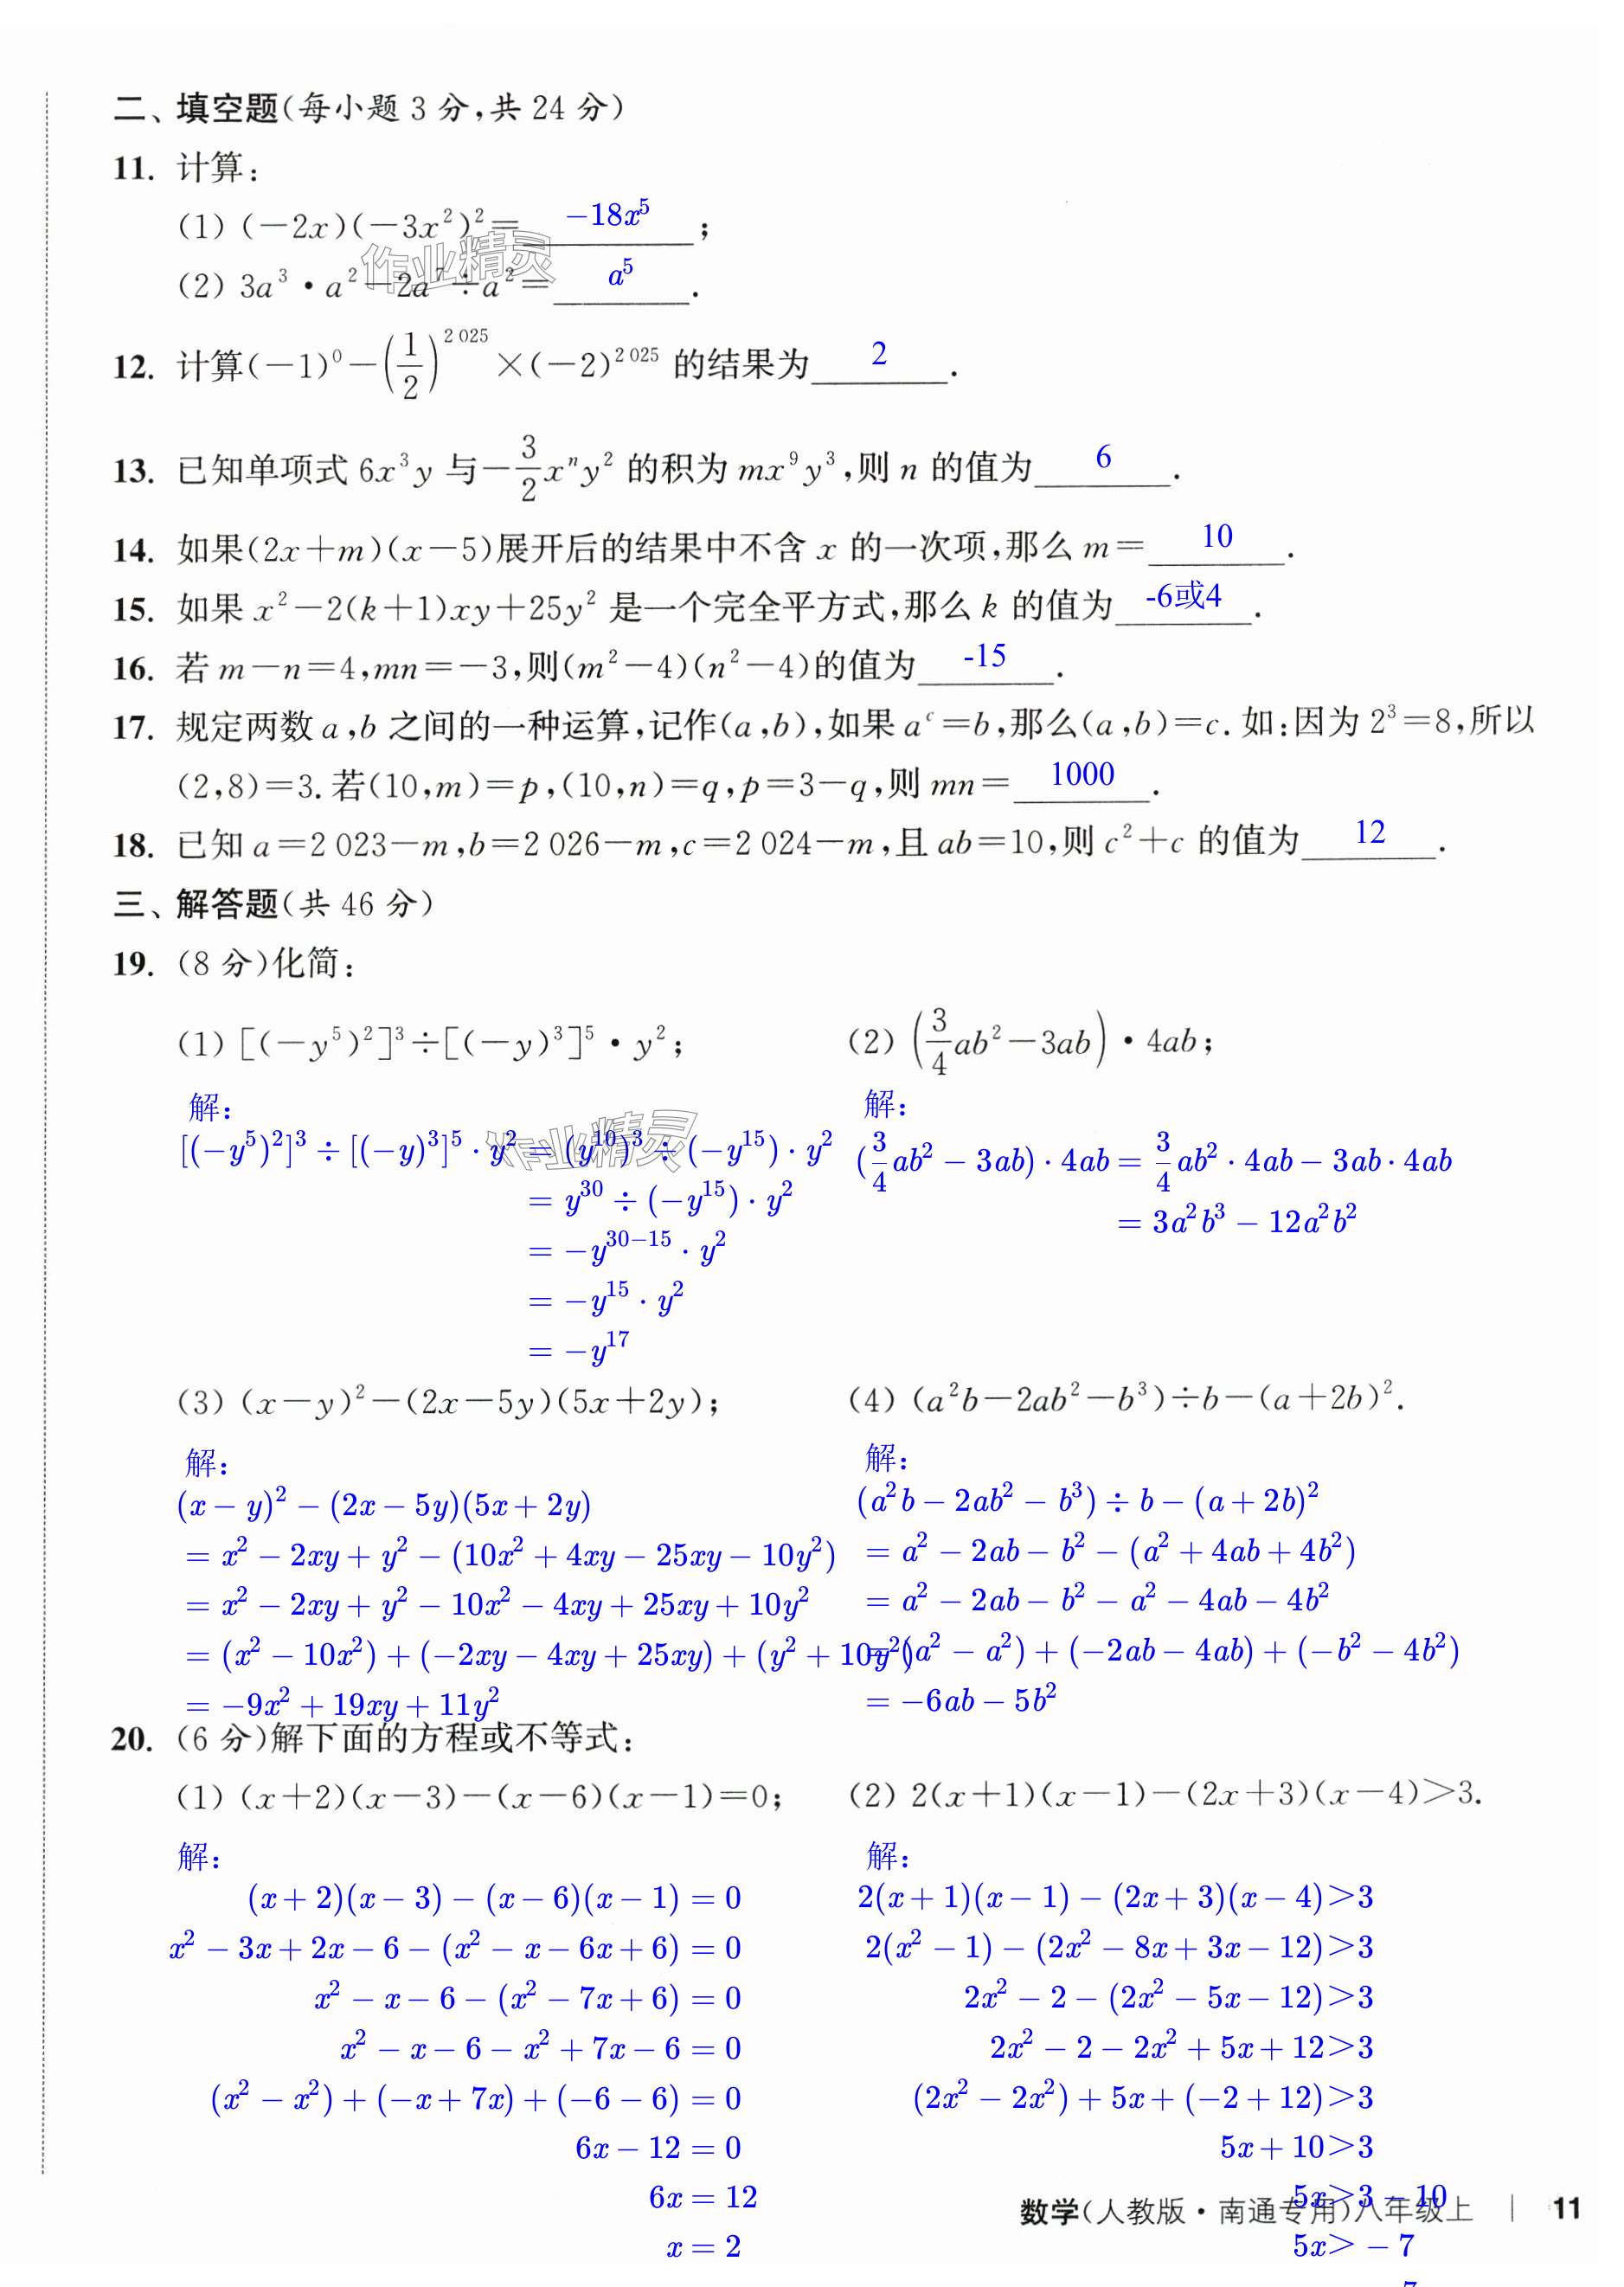 二、填空题(每小题 3 分,共 24 分)
11. 计算:
(1) (-2x)(-3x²)²= -18x⁵ ;
(2) 3a³·a²-2a⁷÷a²= a⁵ .
作业精灵
12. 计算(-1)⁰-(1/2)²⁰²⁵×(-2)²⁰²⁵ 的结果为 2 .
13. 已知单项式 6x³y 与-3/2xⁿy² 的积为 mx⁹y³,则 n 的值为 6 .
14. 如果(2x+m)(x-5)展开后的结果中不含 x 的一次项,那么 m= 10 .
15. 如果 x²-2(k+1)xy+25y² 是一个完全平方式,那么 k 的值为 -6或4 .
16. 若 m-n=4,mn=-3,则(m²-4)(n²-4)的值为 -15 .
17. 规定两数 a,b 之间的一种运算,记作(a,b),如果 aᶜ=b,那么(a,b)=c. 如:因为 2³=8,所以
(2,8)=3. 若(10,m)=p,(10,n)=q,p=3-q,则 mn= 1000 .
18. 已知 a=2 023-m,b=2 026-m,c=2 024-m,且 ab=10,则 c²+c 的值为 12 .
三、解答题(共 46 分)
19. (8 分)化简:
(1) [(-y⁵)²]³÷[(-y)³]⁵·y²;
解:
[(-y⁵)²]³÷[(-y)³]⁵·y²=(y¹⁰)³÷(-y¹⁵)·y²
作业精灵
=y³⁰÷(-y¹⁵)·y²
=-y³⁰⁻¹⁵·y²
=-y¹⁵·y²
=-y¹⁷
(2) (3/4ab²-3ab)·4ab;
解:
(3/4ab²-3ab)·4ab=3/4ab²·4ab-3ab·4ab
=3a²b³-12a²b²
(3) (x-y)²-(2x-5y)(5x+2y);
解:
(x-y)²-(2x-5y)(5x+2y)
=x²-2xy+y²-(10x²+4xy-25xy-10y²)
=x²-2xy+y²-10x²-4xy+25xy+10y²
=(x²-10x²)+(-2xy-4xy+25xy)+(y²+10y²)
=-9x²+19xy+11y²
(4) (a²b-2ab²-b³)÷b-(a+2b)².
解:
(a²b-2ab²-b³)÷b-(a+2b)²
=a²-2ab-b²-(a²+4ab+4b²)
=a²-2ab-b²-a²-4ab-4b²
=(a²-a²)+(-2ab-4ab)+(-b²-4b²)
=-6ab-5b²
20. (6 分)解下面的方程或不等式:
(1) (x+2)(x-3)-(x-6)(x-1)=0;
解:
(x+2)(x-3)-(x-6)(x-1)=0
x²-3x+2x-6-(x²-x-6x+6)=0
x²-x-6-(x²-7x+6)=0
x²-x-6-x²+7x-6=0
(x²-x²)+(-x+7x)+(-6-6)=0
6x-12=0
6x=12
x=2
(2) 2(x+1)(x-1)-(2x+3)(x-4)>3.
解:
2(x+1)(x-1)-(2x+3)(x-4)>3
2(x²-1)-(2x²-8x+3x-12)>3
2x²-2-(2x²-5x-12)>3
2x²-2-2x²+5x+12>3
(2x²-2x²)+5x+(-2+12)>3
5x+10>3
5x>3-10
5x>-7
数学(人教版·南通专用)八年级上 | 11